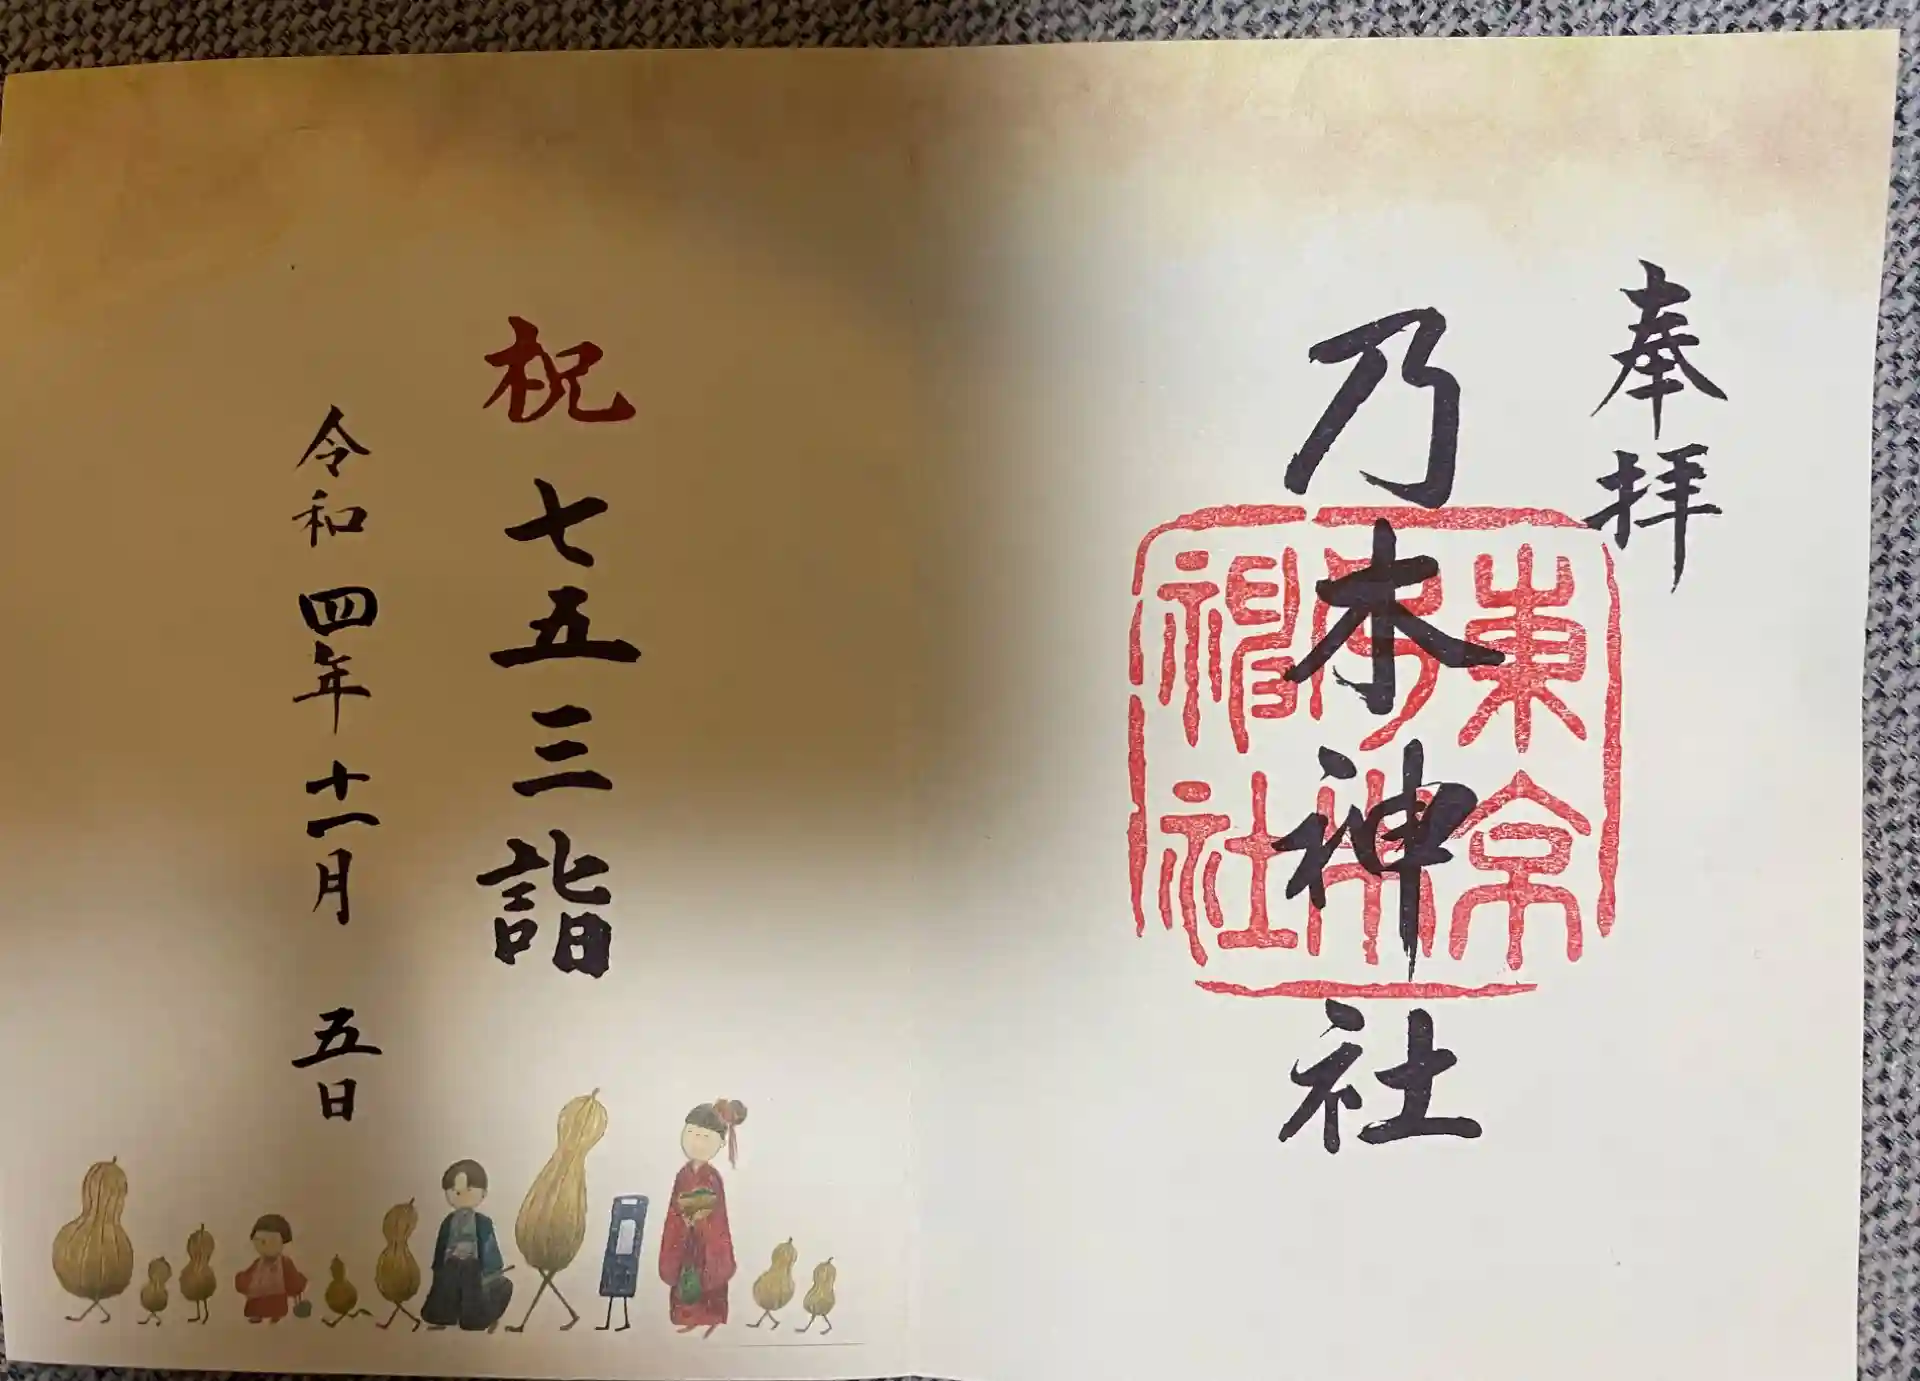 奉拝
乃木神社
東京
乃木神社
祝七五三詣
令和四年十一月 五日